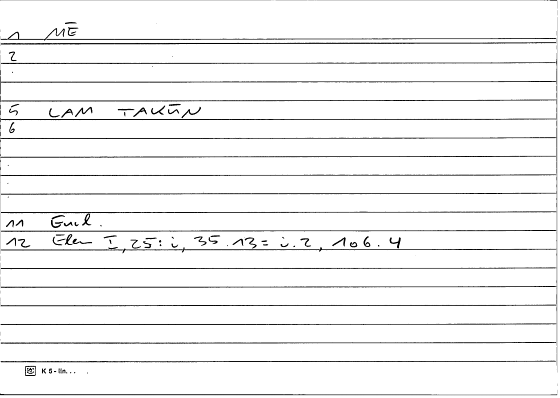 1 MĒ
2
5 LAM TAKŪN
6
11 Eucl.
12 Elem I, 25: i, 35.13 = i.2, 106.4
K 5 - lin...